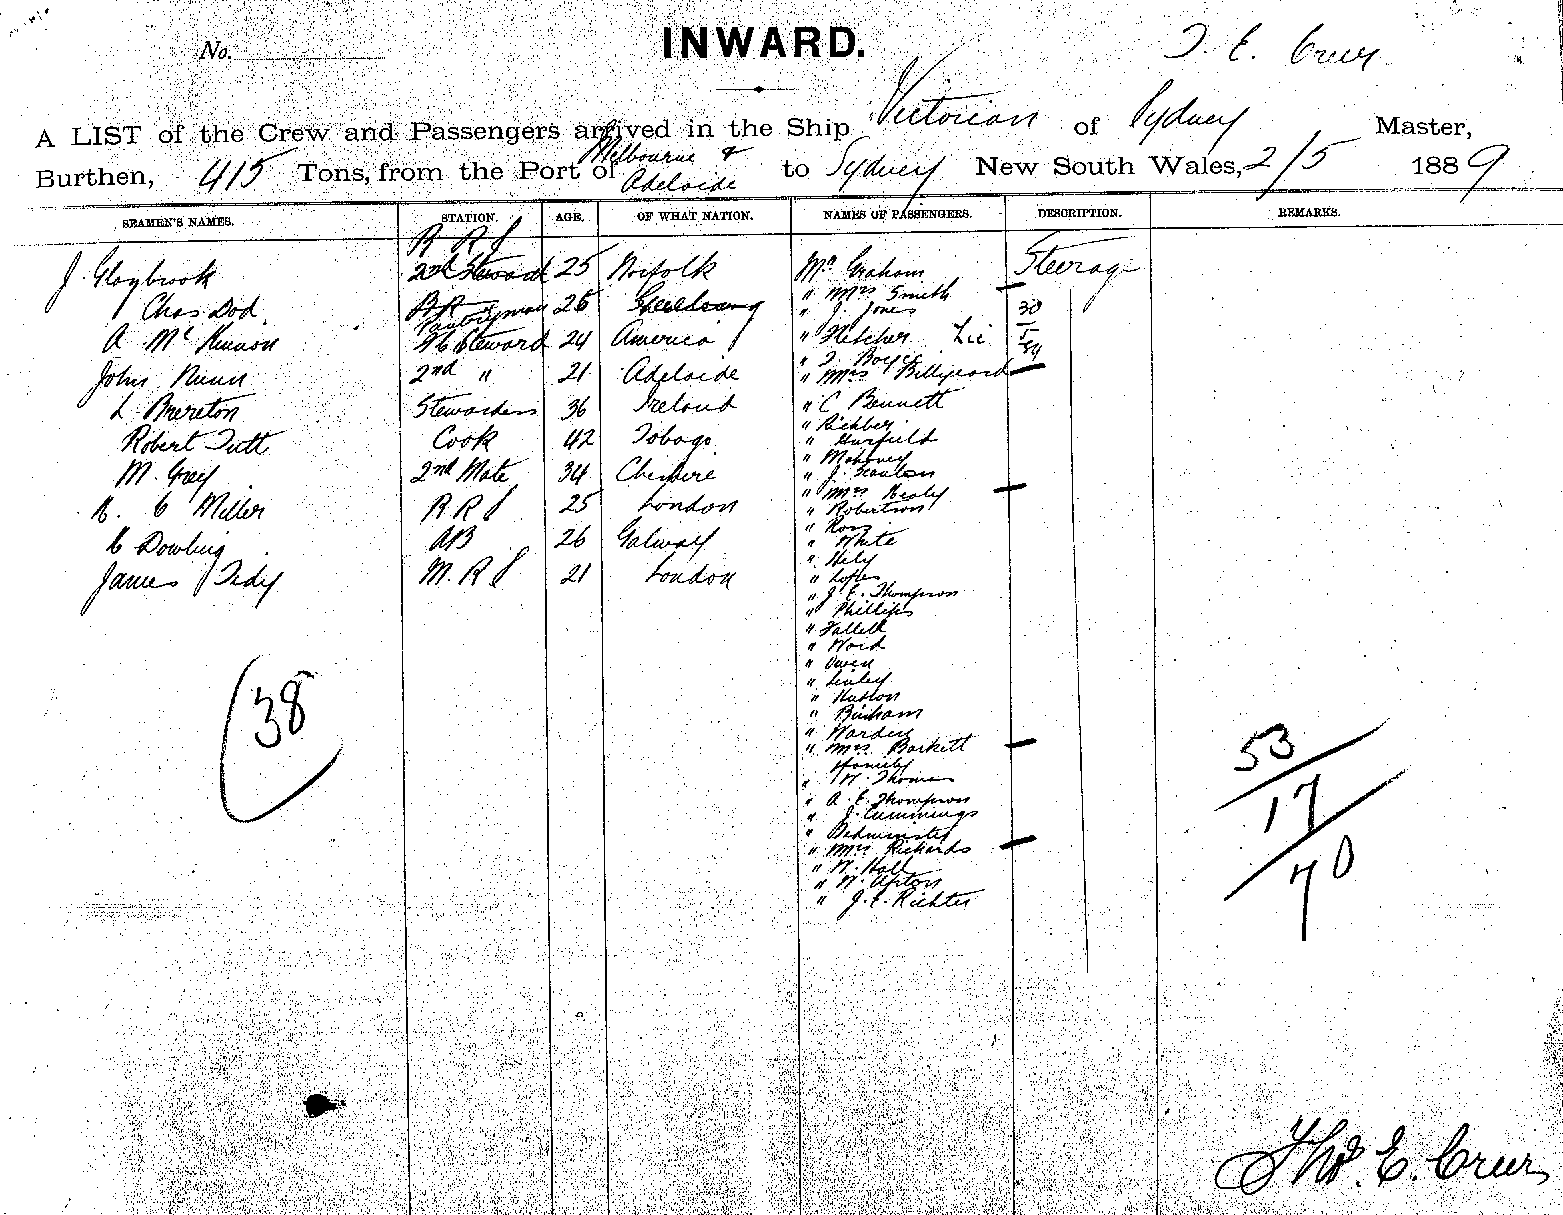 No.
INWARD.
T. E. Creer
A LIST of the Crew and Passengers arrived in the Ship Victorian of Sydney Master,
Burthen, 415 Tons, from the Port of Melbourne & Adelaide to Sydney New South Wales, 2/5 1889
SEAMEN'S NAMES. STATION. AGE. OF WHAT NATION. NAMES OF PASSENGERS. DESCRIPTION. REMARKS.
J. Claybrook 2nd Steward 25 Norfolk
Chas Dod Pantryman 26 Geelong
A McKinnon Steward 24 America
John Nunn 2nd " 21 Adelaide
L Brereton Stewardess 36 Ireland
Robert Tutt Cook 42 Tobago
M. Grey 2nd Mate 34 Cheshire
C Miller 25 London
Dowling AB 26 Galway
James 21 London
38
Mr Graham Steerage
" Mrs Smith
" J. Jones 30
" Fletcher
" Mrs Billyeard
" C Bennett
" Mahoney
" J. Scanlan
" Mrs Healy
" Robertson
" Ross
" White
" Hely
" J. E. Thompson
" Phillips
" Ward
" Owen
" Bingham
" Mrs Barkett
family
" Thomas
" A. E. Thompson
" J. Cummings
" Bedminster
" Mrs Rickards
" W. Hall
" W. Upton
" J. E. Richter
53
17
70
Thos. E. Creer